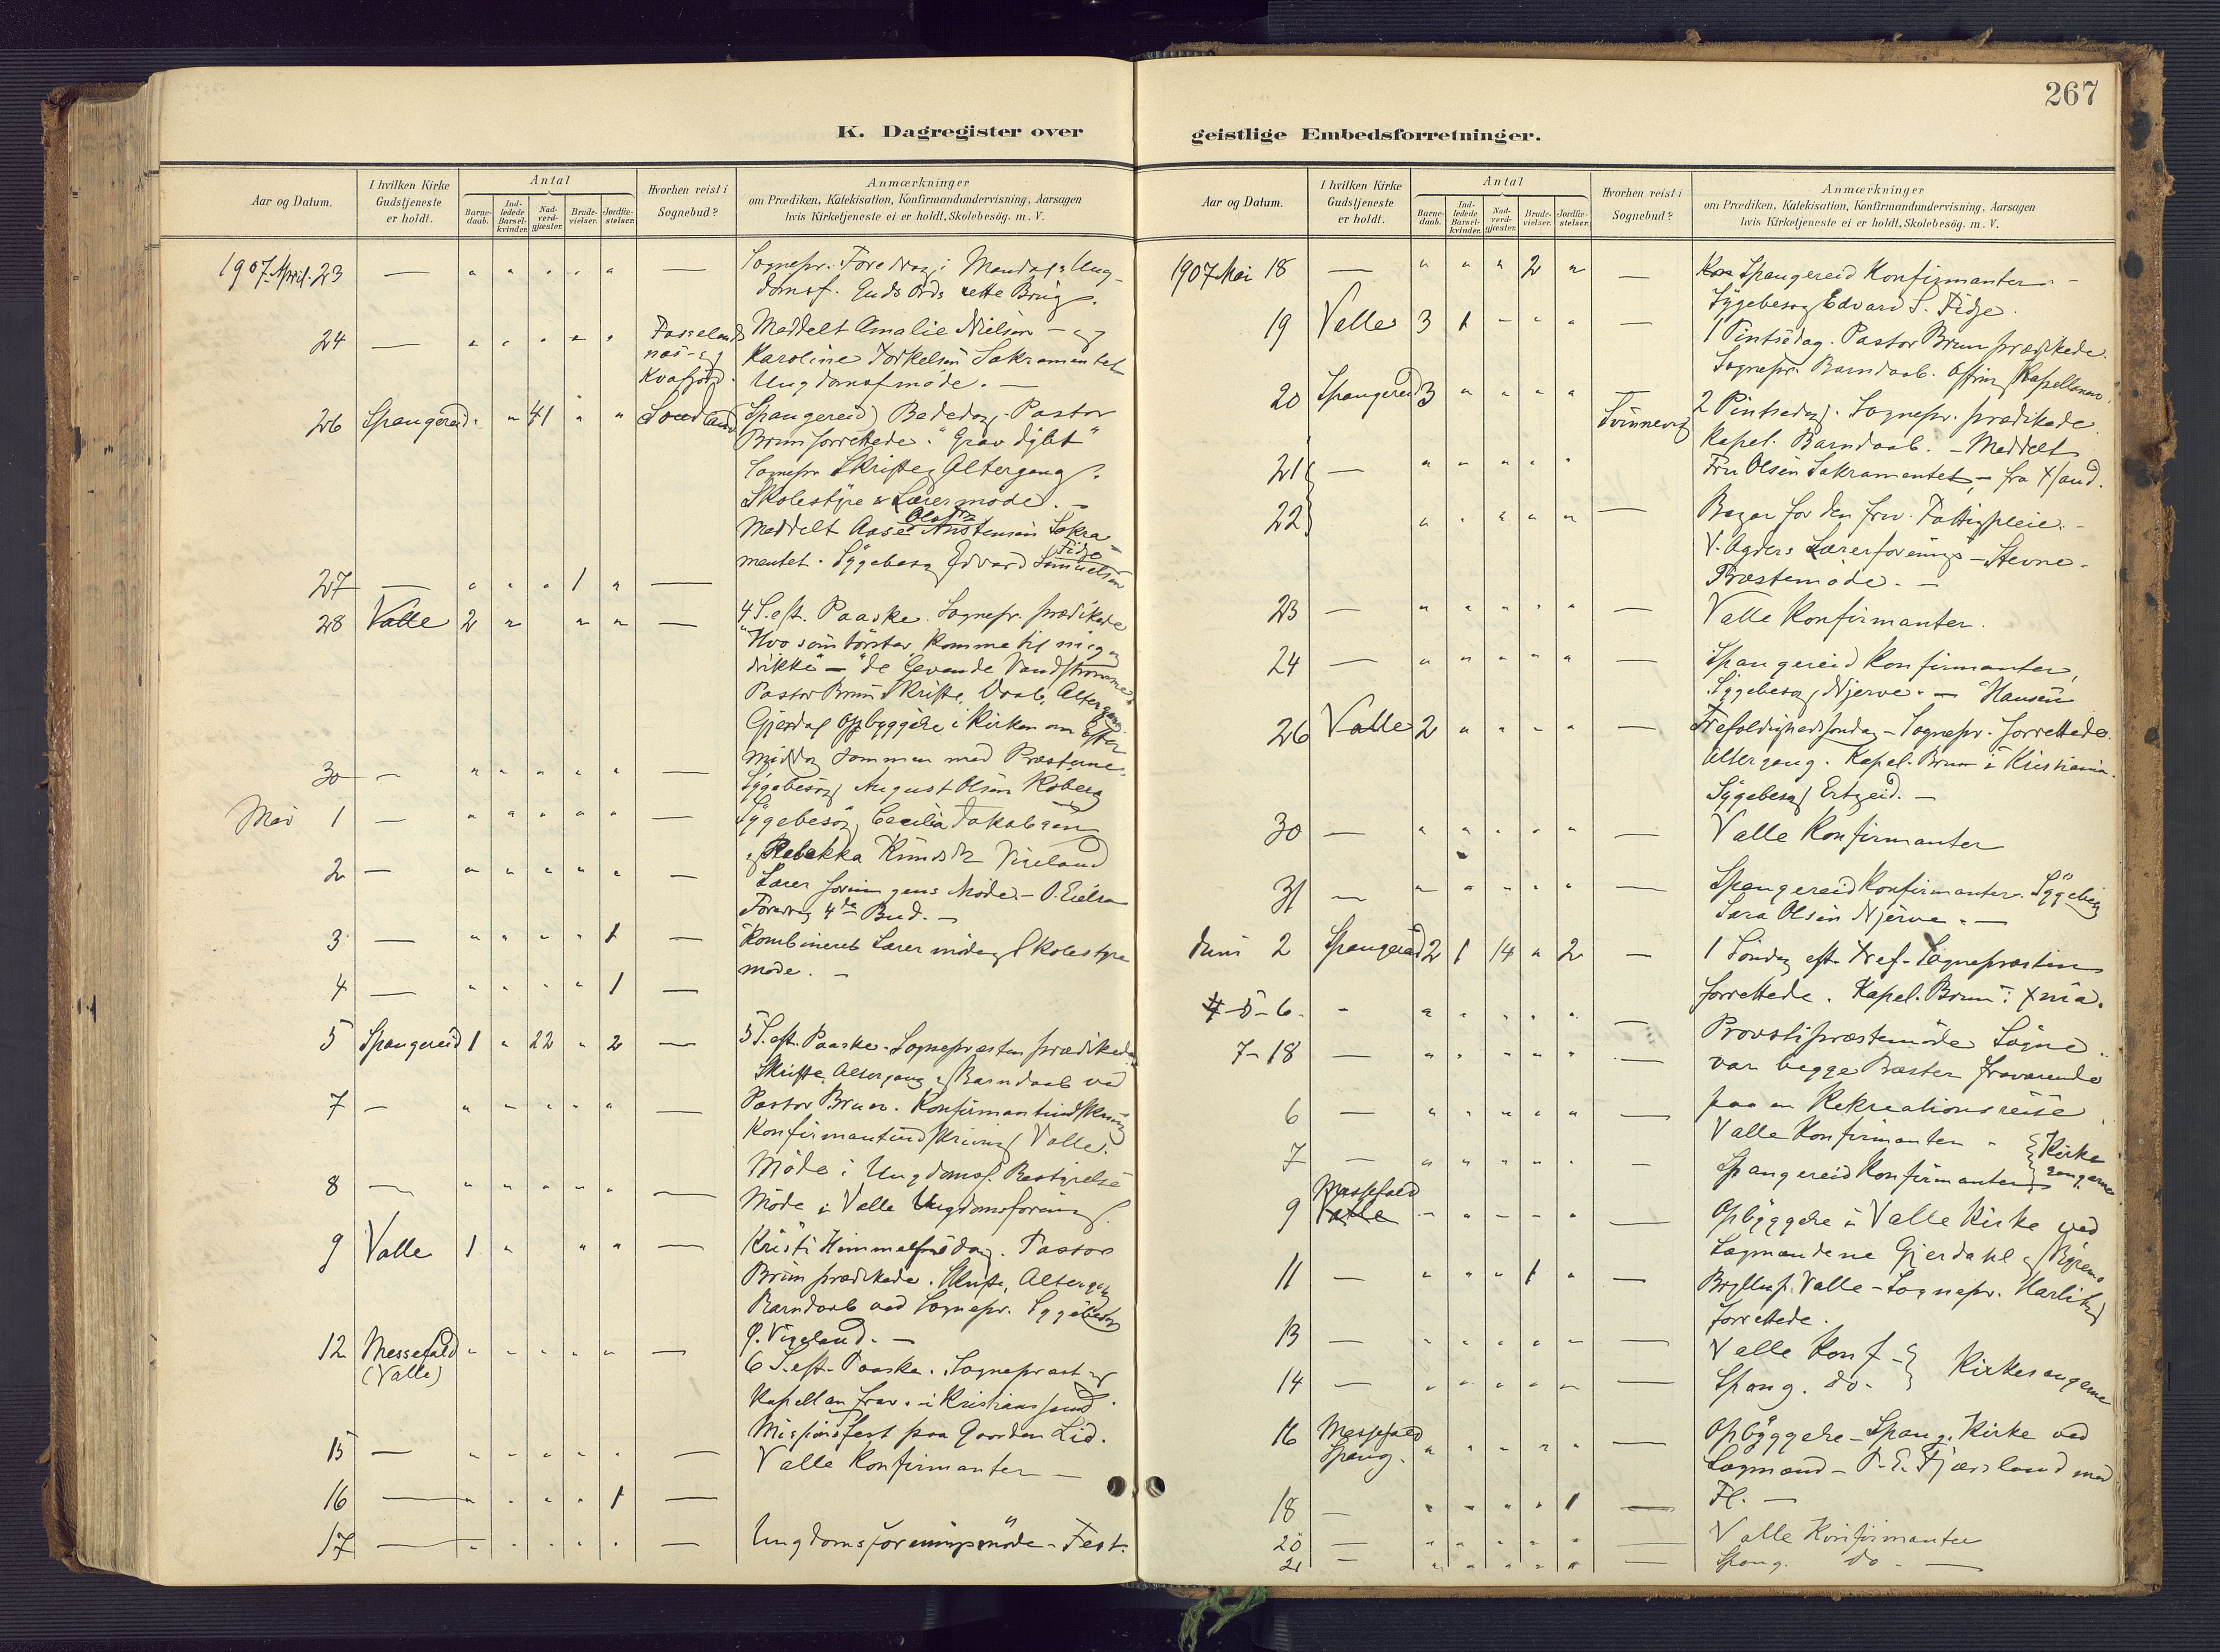 267
K. Dagregister over
geistlige Embedsforretninger.
Aar og Datum.
I hvilken Kirke Gudstjeneste er holdt.
Antal
Barne-daab.
Ind-ledede Barsel-kvinder.
Nad-verd-gjæster.
Brude-vielser.
Jordfæ-stelser.
Hvorhen reist i Sognebud?
Anmærkninger
om Prædiken, Katekisation, Konfirmandundervisning, Aarsagen
hvis Kirketjeneste ei er holdt, Skolebesög. m. V.
1907 April. 23 — " " " " " — Sognepr. Foredrag i Mandals Ung-
domsf. Guds Ords rette Brug.
24 — " " " " " Meddelt Amalie Nielsen — og
Karoline Torkelsen Sakramentet
Ungdomsmöde. —
26 Spangereid " " 41 " " Spangereid Bededag. Pastor
Brun forrettede. "Grav dybt"
Sognepr Skrifte og Altergang
Skolestyre & Lærermöde. —
Meddelt Aase Sakra-
mentet. Sygebesøg Edvard Samuelsen
Fidje
27 — " " " 1 " —
28 Valle 2 " " " — 4 S. eft. Paaske. Sognepr. prædikede
"Hvo som törster, komme til mig og
drikke" — "de levende Vandströmme"
Pastor Brun Skrifte, Daab, Altergang
Opbyggelse i Kirken om Efter
middag sammen med Præsterne.
30 — " " " " " — Sygebesög August Olsen
Mai 1 — " " " " " — Sygebesög Cecilia Jakobsen
& Rebekka Vigeland
2 — " " " " " — Lærerforeningens Möde —
Foredrag 4de Bud. —
3 — " " " " 1 — Kombineret Lærermöde og Skolestyre
möde. —
4 — " " " " 1 —
5 Spangereid 1 " 22 " 2 — 5 S. eft. Paaske. Sognepræsten prædikede
Skrifte, Altergang & Barndaab ved
7 — " " " " " — Pastor Brun. Konfirmantindskrivning
Konfirmantindskrivning Valle.
Möde i Ungdomsf. Bestyrelse
8 — " " " " " — Möde i Valle Ungdomsforening.
9 Valle 1 " " " — Kristi Himmelfartsdag. Pastor
Brun prædikede. Skrifte, Altergang
Barndaab ved Sognepr. Sygebesög
Vigeland. —
12 Messefald " " " " " — 6 S. eft. Paaske. Sognepræst og
(Valle)
Kapellan frav. i Kristianssand.
Missionsfest paa Gaarden Lid.
15 — " " " " " — Valle Konfirmanter —
16 — " " " " 1 —
17 — " " " " " — Ungdomsforeningsmöde - Fest.
1907 Mai 18 — " " " 2 " — Spangereid Konfirmanter —
Sygebesøg Edvard S. Fidje.
19 Valle 3 1 " " " — 1 Pintsedag. Pastor Brun prædikede.
Sognepr. Barndaab. Offring Kapellanen.
20 Spangereid 3 " " " " Svinnevig 2 Pintsedag. Sognepr. prædikede
Kapel. Barndaab. — Meddelt
Fru Olsen Sakramentet,
21 — " " " " "
22 " " " " " — Bazar for den friv. Fattigpleie. —
V. Agders Lærerforenings — Stevne —
Præstemöde. —
23 — " " " " " — Valle Konfirmanter.
24 — " " " " " — Spangereid Konfirmanter,
Sygebesøg Njerve. — Hansen
26 Valle 2 " " " " — Trefoldighedssöndag — Sognepr. forrettede.
Altergang. Kapel. Brun i Kristiania.
Sygebesøg Ertzeid. —
30 — " " " " " — Valle Konfirmanter
31 — " " " " " — Spangereid Konfirmanter. Sygebesög
Sara Olsen Njerve. —
Juni 2 Spangereid 2 1 14 " 2 — 1 Söndag eft. Tref. Sognepræsten
forrettede. Kapel. Brun i Xnia.
4-5-6. " " " " " — Provstipræstemöde Sögne.
7-18 — " " " " " — var begge Præster fraværende
paa en Rekreationsreise.
6 — " " " " " — Valle Konfirmanter
7 — " " " " " — Spangereid Konfirmanter
} Kirke
sangerne
9 Messefald " " " " " — Opbyggelse i Valle Kirke ved
Valle
Lægmændene Gjerdahl &
11 — " " " 1 " — Bryllup. Valle — Sognepr.
forrettede.
13 — " " " " " — Valle Konf —
14 — " " " " " Spang. do.
} Kirkesangerne
16 Messefald " " " " " — Opbyggelse — Spang. Kirke ved
Spang.
Lægmænd —
Fl. —
18 — " " " " 1 —
20 — " " " " " — Valle Konfirmanter
21 — " " " " " — Spang. do —